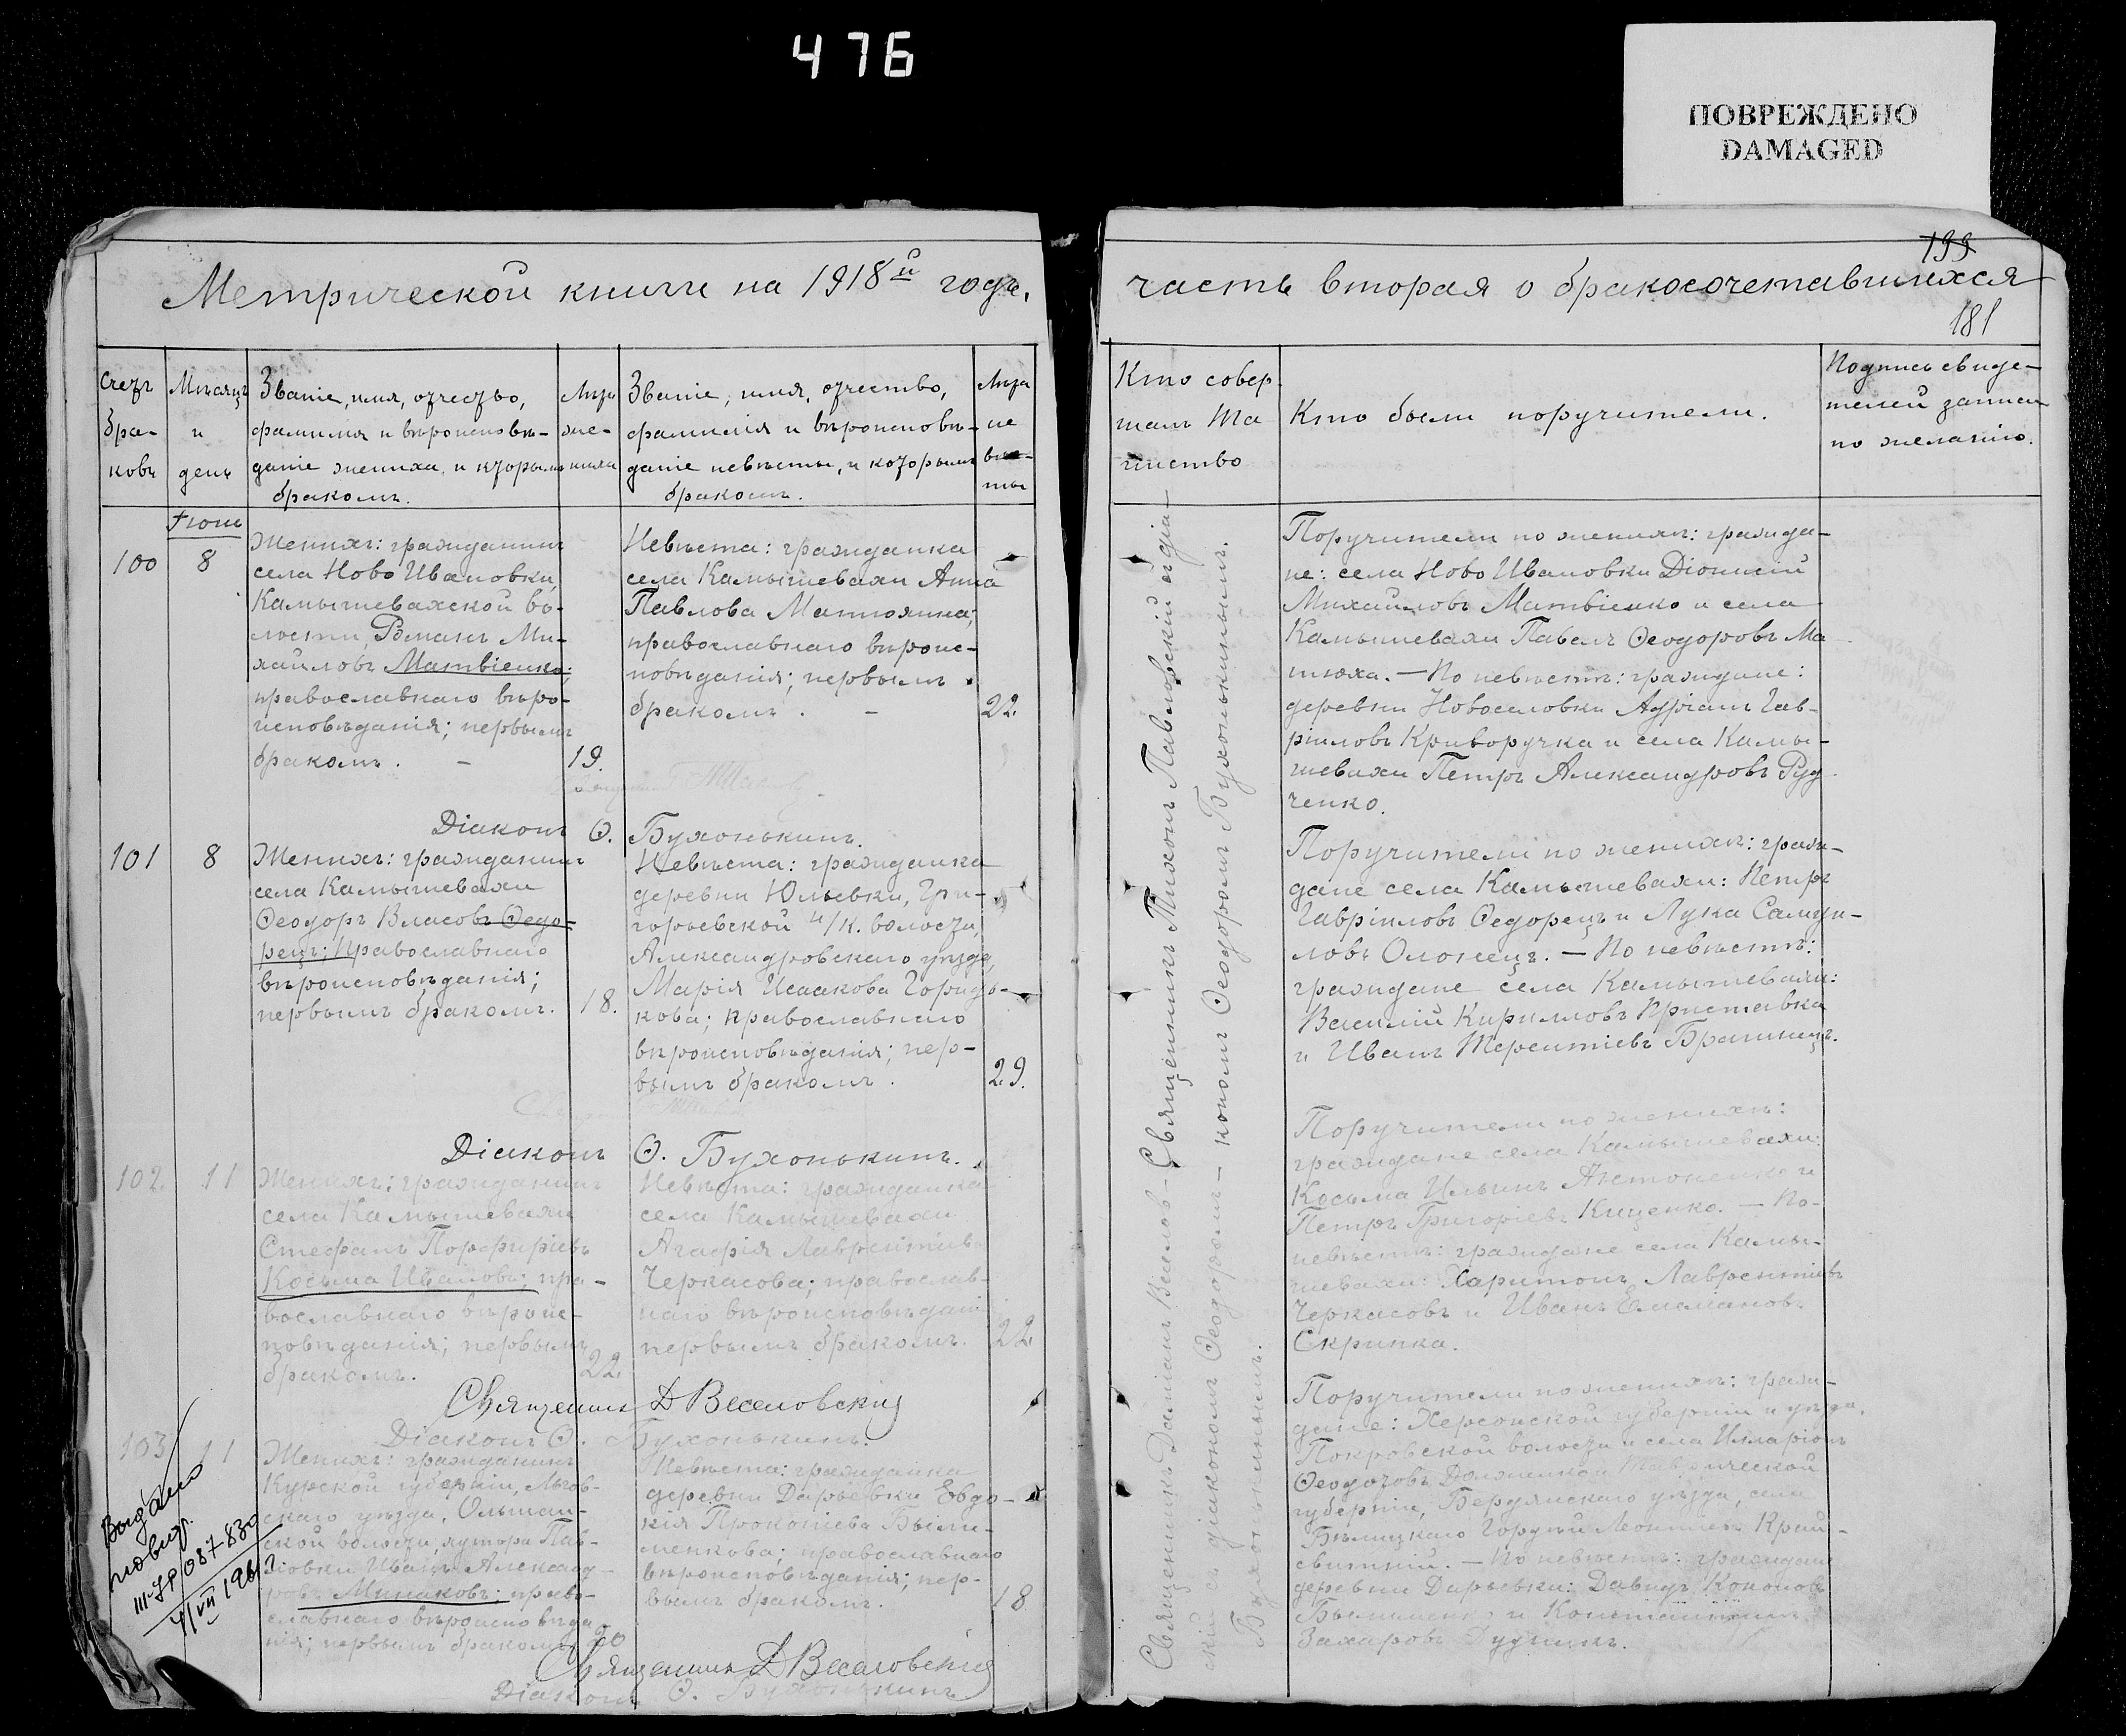 476
ПОВРЕЖДЕНО
DAMAGED
Метрической книги на 1918й годъ,
часть вторая о бракосочетавшихся
199
181
Счетъ браковъ
Мѣсяцъ и день
Званіе, имя, отчество,
фамилія и вѣроисповѣ-
даніе жениха, и которымъ
бракомъ.
Лѣта жениха
Званіе, имя, отчество,
фамилія и вѣроисповѣ-
даніе невѣсты, и которымъ
бракомъ.
Лѣта невѣсты
Кто совер
шалъ Та
инство
Кто были поручители.
Подпись свиде-
телей записи
по желанію.
100
8
Женихъ: гражданинъ
села Ново Ивановки,
Камышевахской во-
лости, Романъ Ми-
хайловъ Матвіенко;
православнаго вѣро-
исповѣданія; первымъ
бракомъ. –
19.
Невѣста: гражданка
села Камышевахи Анна
Павлова
православнаго вѣроис-
повѣданія; первымъ
бракомъ. –
22.
Поручители по женихѣ: гражда-
не: села Ново Ивановки Діонисій
Михайловъ Матвіенко и села
Камышевахи Павелъ Ѳеодоровъ Ма
тюха. — По невѣстѣ: граждане:
деревни Новоселовки Адріанъ Гав-
ріиловъ Криворучка и села Камы-
шевахи Петръ Александровъ Руд
ченко.
Діаконъ Ѳ. Бухонькинъ.
101
8
Женихъ: гражданинъ
села Камышевахи
Ѳеодоръ Власовъ Ѳедо-
рецъ; православнаго
вѣроисповѣданія;
первымъ бракомъ.
18.
Невѣста: гражданка
деревни Юльевки, Гри-
горьевской н/К. волости,
Александровскаго уѣзда,
Марія Исаакова
кова; православнаго
вѣроисповѣданія; пер-
вымъ бракомъ.
29.
Поручители по женихѣ: граж-
дане села Камышевахи: Петръ
Гавріиловъ Ѳедорецъ и Лука Самуи-
ловъ — По невѣстѣ:
граждане села Камышевахи:
Василій Кирилловъ Приставка
и Иванъ Терентіевъ
Діаконъ Ѳ. Бухонькинъ.
102.
11
Женихъ: гражданинъ
села Камышевахи
Стефанъ Порфиріевъ
Косьма Ивановъ; пра-
вославнаго вѣроис-
повѣданія; первымъ
бракомъ.
22.
Невѣста: гражданка
села Камышевахи
Агафія Лаврентіев
Черкасова; православ-
наго вѣроисповѣданія
первымъ бракомъ.
22.
Поручители по женихѣ:
граждане села Камышевахи:
Косьма Ильинъ Антоненко и
Петръ Григоріевъ Киценко. — По-
невѣстѣ: граждане села Камы-
шевахи: Харитонъ Лаврентіевъ
Черкасовъ и Иванъ Емеліановъ
Скрипка.
Священникъ Д Веселовскій
Діаконъ Ѳ. Бухонькинъ.
103
11
Женихъ: гражданинъ
Курской губерніи, Льгов-
скаго уѣзда,
ской волости, хутора Пав-
ловки Иванъ Александ-
ровъ Минаковъ; право-
славнаго вѣроисповѣда
нія; первымъ бракомъ.
20
Невѣста: гражданка
деревни Дарьевки Евдо-
кія Прокопіева
менкова; православнаго
вѣроисповѣданія; пер-
вымъ бракомъ.
18
Поручители по женихѣ: граж-
дане: Херсонской губерніи и уѣзда,
Покровской волости и села Иларіонъ
Ѳеодотовъ Таврической
губерніи, Бердянскаго уѣзда, села
— По невѣстѣ: граждане
деревни Дарьевки: Давидъ Кононовъ
и Константинъ
Захаровъ Дудникъ.
Священникъ Д Веселовскій
Діаконъ Ѳ. Бухонькинъ
Выдано
III-ЖР 087-830
Священникъ Даміанъ Веселов- Священникъ Тихонъ Павловскій съ діа-
скій съ діакономъ Ѳеодоромъ – кономъ Ѳеодоромъ Бухонькинымъ.
Бухонькинымъ.